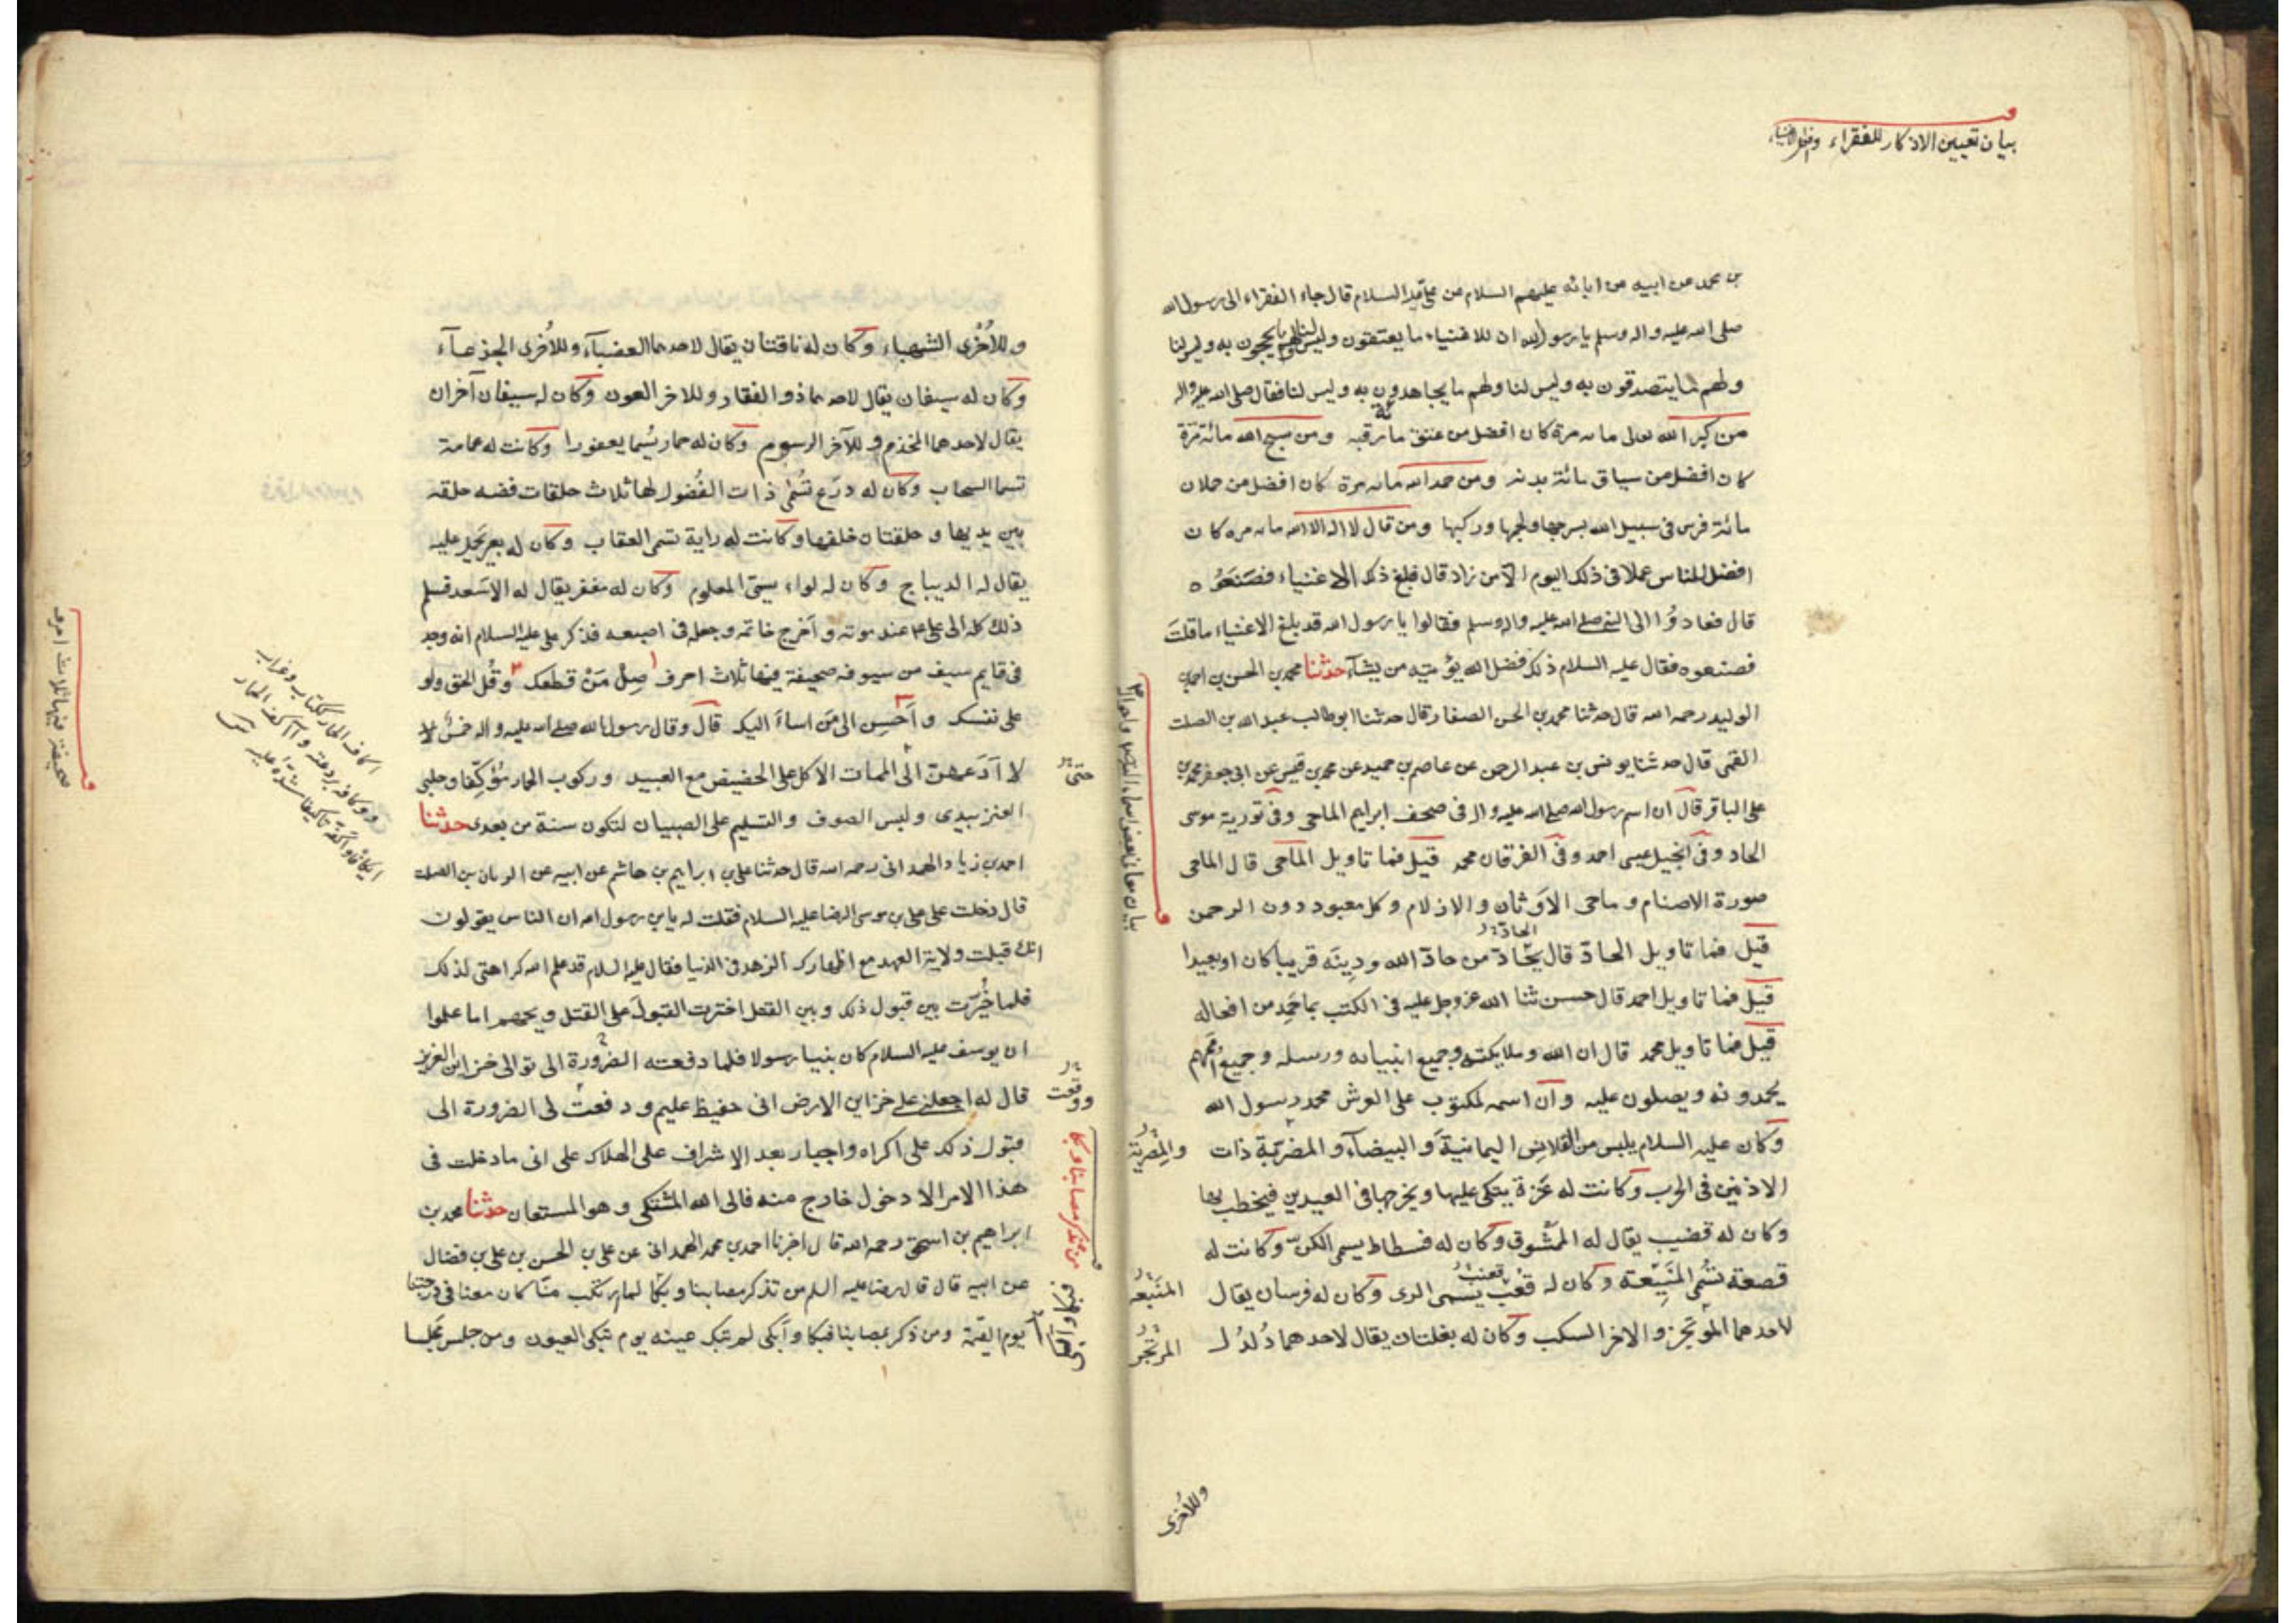 بيان تعيين الاذكار للفقراء
بن محمد عن ابيه عن ابائه عليهم السلام عن على عليه السلام قال جاء الفقراء الى رسول الله
صلى الله عليه واله وسلم يا رسول الله ان للاغنياء ما يعتقون وليس لنا ولهم ما يحجون به وليس لنا
ولهم ما يتصدقون به وليس لنا ولهم ما يجاهدون به وليس لنا فقال صلى الله عليه واله
من كبر الله تعالى مائه مرة كان افضل من عتق مائة رقبه ومن سبح الله مائة مرة
كان افضل من سياق مائة بدنه ومن حمد الله مائه مرة كان افضل من حملان
مائة فرس فى سبيل الله بسرجها ولجمها وركبها ومن قال لا اله الا الله مائه مره كان
افضل الناس عملا فى ذلك اليوم الا من زاد قال فبلغ ذلك الاغنياء فصنعوه
قال فعادوا الى النبى صلى الله عليه واله وسلم فقالوا يا رسول الله قد بلغ الاغنياء ما قلت
فصنعوه فقال عليه السلام ذلك فضل الله يؤتيه من يشاء حدثنا محمد بن الحسن بن احمد بن
الوليد رحمه الله قال حدثنا محمد بن الحسن الصفار قال حدثنا ابو طالب عبد الله بن الصلت
القمى قال حدثنا يونس بن عبد الرحمن عن عاصم بن حميد عن محمد بن قيس عن ابى جعفر محمد بن
على الباقر قال ان اسم رسول الله صلى الله عليه واله فى صحف ابراهيم الماحى وفى تورية موسى
الحاد وفى انجيل عيسى احمد وفى الفرقان محمد قيل فما تاويل الماحى قال الماحى
صورة الاصنام وماحى الاوثان والازلام وكل معبود دون الرحمن
قيل فما تاويل الحادّ قال يحادّ من حادّ الله ودينه قريبا كان او بعيدا
قيل فما تاويل احمد قال حسن ثنا الله عز وجل عليه فى الكتب بما حمد من افعاله
قيل فما تاويل محمد قال ان الله وملايكته وجميع انبيائه ورسله وجميع اممهم
يحمدونه ويصلون عليه وان اسمه لمكتوب على العرش محمد رسول الله
وكان عليه السلام يلبس من القلانس اليمانية والبيضاء والمضربة ذات
الاذنين فى الحرب وكانت له عنزة يتكى عليها ويخرجها فى العيدين فيخطب بها
وكان له قضيب يقال له الممشوق وكان له فسطاط يسمى الكن وكانت له
قصعة تسمى المنبعة وكان له قعب يسمى الرى وكان له فرسان يقال
لاحدهما المرتجز والاخر السكب وكان له بغلتان يقال لاحدهما دلدل
بيان معانى بعض اسماء النبى
والمضرية
المنبعه
المرتجز
وللاخرى
وللاخرى الشهباء وكان له ناقتان يقال لاحدهما العضباء وللاخرى الجذعاء
وكان له سيفان يقال لاحدهما ذو الفقار وللاخر العون وكان له سيفان آخران
يقال لاحدهما المخذم وللآخر الرسوم وكان له حمار يسما يعفورا وكانت له عمامة
تسما السحاب وكان له درع تسمى ذات الفضول لها ثلاث حلقات فضه حلقه
بين يديها وحلقتان خلفها وكانت له راية تسمى العقاب وكان له بعير يحمل عليه
يقال له الديباج وكان له لواء يسمى المعلوم وكان له مغفر يقال له الاسعد فسلم
ذلك كله الى على ع عند موته واخرج خاتمه وجعله فى اصبعه فذكر على عليه السلام انه وجد
فى قايم سيف من سيوفه صحيفة فيها ثلاث احرف صل من قطعك وقل الحق ولو
على نفسك واحسن الى من اساء اليك قال وقال رسول الله صلى الله عليه واله خمس
لا ادعهن الى الممات الاكل على الحضيض مع العبيد وركوب الحمار مؤكفا وحلبى
العنز بيدى ولبس الصوف والتسليم على الصبيان لتكون سنة من بعدى حدثنا
احمد بن زياد الهمدانى رحمه الله قال حدثنا على بن ابراهيم بن هاشم عن ابيه عن الريان بن الصلت
قال دخلت على على بن موسى الرضا عليه السلام فقلت له يا بن رسول الله ان الناس يقولون
انك قبلت ولاية العهد مع اظهارك الزهد فى الدنيا فقال عليه السلام قد علم الله كراهتى لذلك
فلما خيرت بين قبول ذلك وبين القتل اخترت القبول على القتل ويحهم اما علموا
ان يوسف عليه السلام كان نبيا رسولا فلما دفعته الضرورة الى تولى خزاين العزيز
قال له اجعلنى على خزاين الارض انى حفيظ عليم ودفعت لى الضرورة الى
قبول ذلك على اكراه واجبار بعد الاشراف على الهلاك على انى ما دخلت فى
هذا الامر الا دخول خارج منه فالى الله المشتكى وهو المستعان حدثنا محمد بن
ابراهيم بن اسحق رحمه الله قال اخبرنا احمد بن محمد الهمدانى عن على بن الحسن بن على بن فضال
عن ابيه قال قال رضا عليه السلم من تذكر مصابنا وبكا لما ارتكب منا كان معنا فى درجتنا
يوم القيمة ومن ذكر بمصابنا فبكا وابكى لم تبك عينه يوم تبكى العيون ومن جلس مجلسا
حتى
ودفعت
من تذكر مصابنا وبكا
اكاف الحمار ككتاب وغراب
ووكافه برذعته وآكف الحمار
ايكافا واكفه تاكيفا شده عليه
صحيفة فيها ثلاث احرف